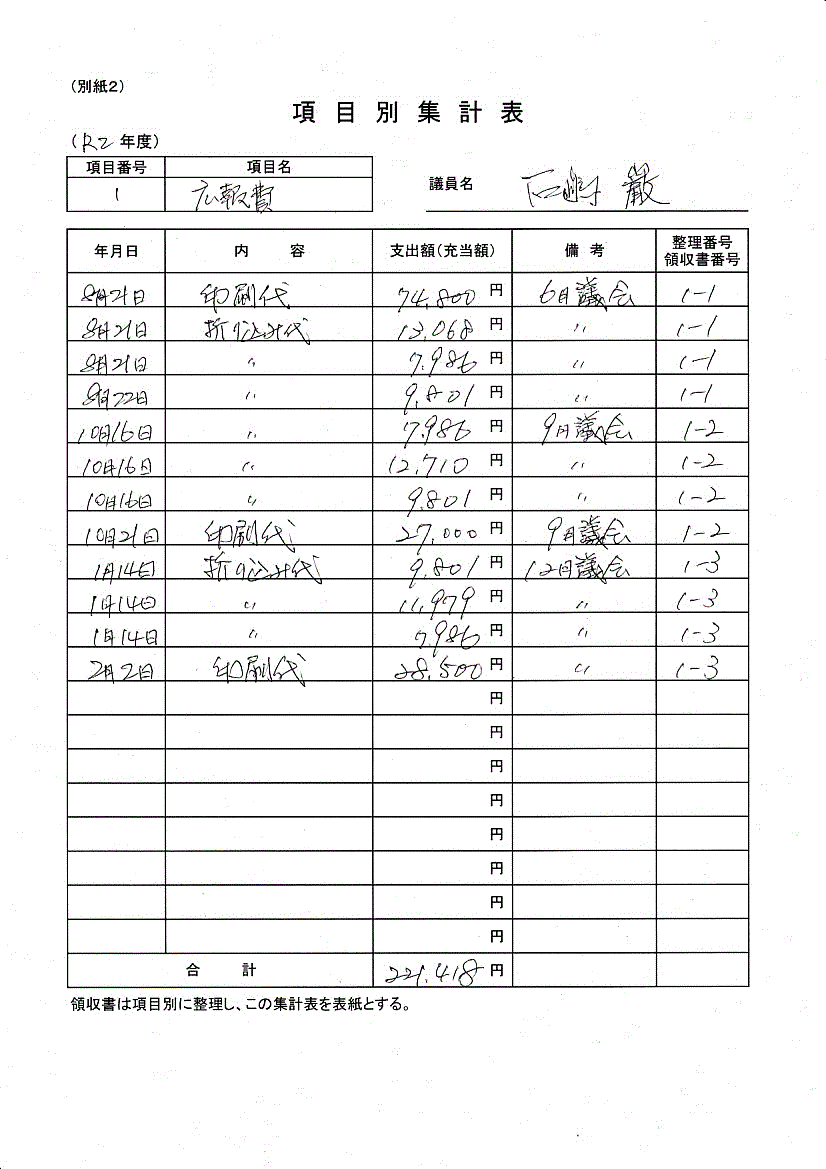 (別紙2)
項目別集計表
(R2年度)
項目番号 項目名
1 広報費
議員名 石崎 巖
年月日 内容 支出額(充当額) 備考 整理番号 領収書番号
8月21日 印刷代 74,800円 6月議会 1-1
8月21日 折り込み代 13,068円 〃 1-1
8月21日 〃 7,986円 〃 1-1
8月22日 〃 9,801円 〃 1-1
10月16日 〃 7,986円 9月議会 1-2
10月16日 〃 12,710円 〃 1-2
10月16日 〃 9,801円 〃 1-2
10月21日 印刷代 27,000円 9月議会 1-2
1月14日 折り込み代 9,801円 12月議会 1-3
1月14日 〃 11,979円 〃 1-3
1月14日 〃 7,986円 〃 1-3
2月2日 印刷代 28,500円 〃 1-3
円
円
円
円
円
円
円
円
合計 221,418円
領収書は項目別に整理し、この集計表を表紙とする。